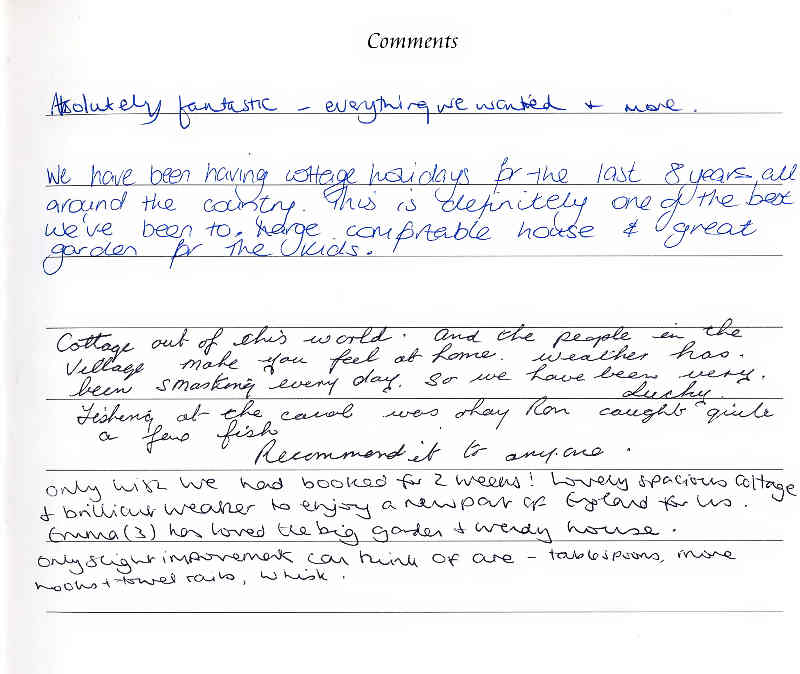 Comments
Absolutely fantastic – everything we wanted + more.
We have been having cottage holidays for the last 8 years all
around the country. This is definitely one of the best
we've been to. Large comfortable house & great
garden for the kids.
Cottage out of this world. And the people in the
Village make you feel at home. Weather has.
been smasking every day. So we have been very.
Lucky.
Fishing at the canal was okay Ron caught quite
a few fish
Recommend it to anyone.
Only wish we had booked for 2 weeks! Lovely spacious cottage
+ brilliant weather to enjoy a new part of England for us.
Emma (3) has loved the big garden + wendy house.
Only slight improvement can think of are – tablespoons, more
hooks + towel rails, whisk.